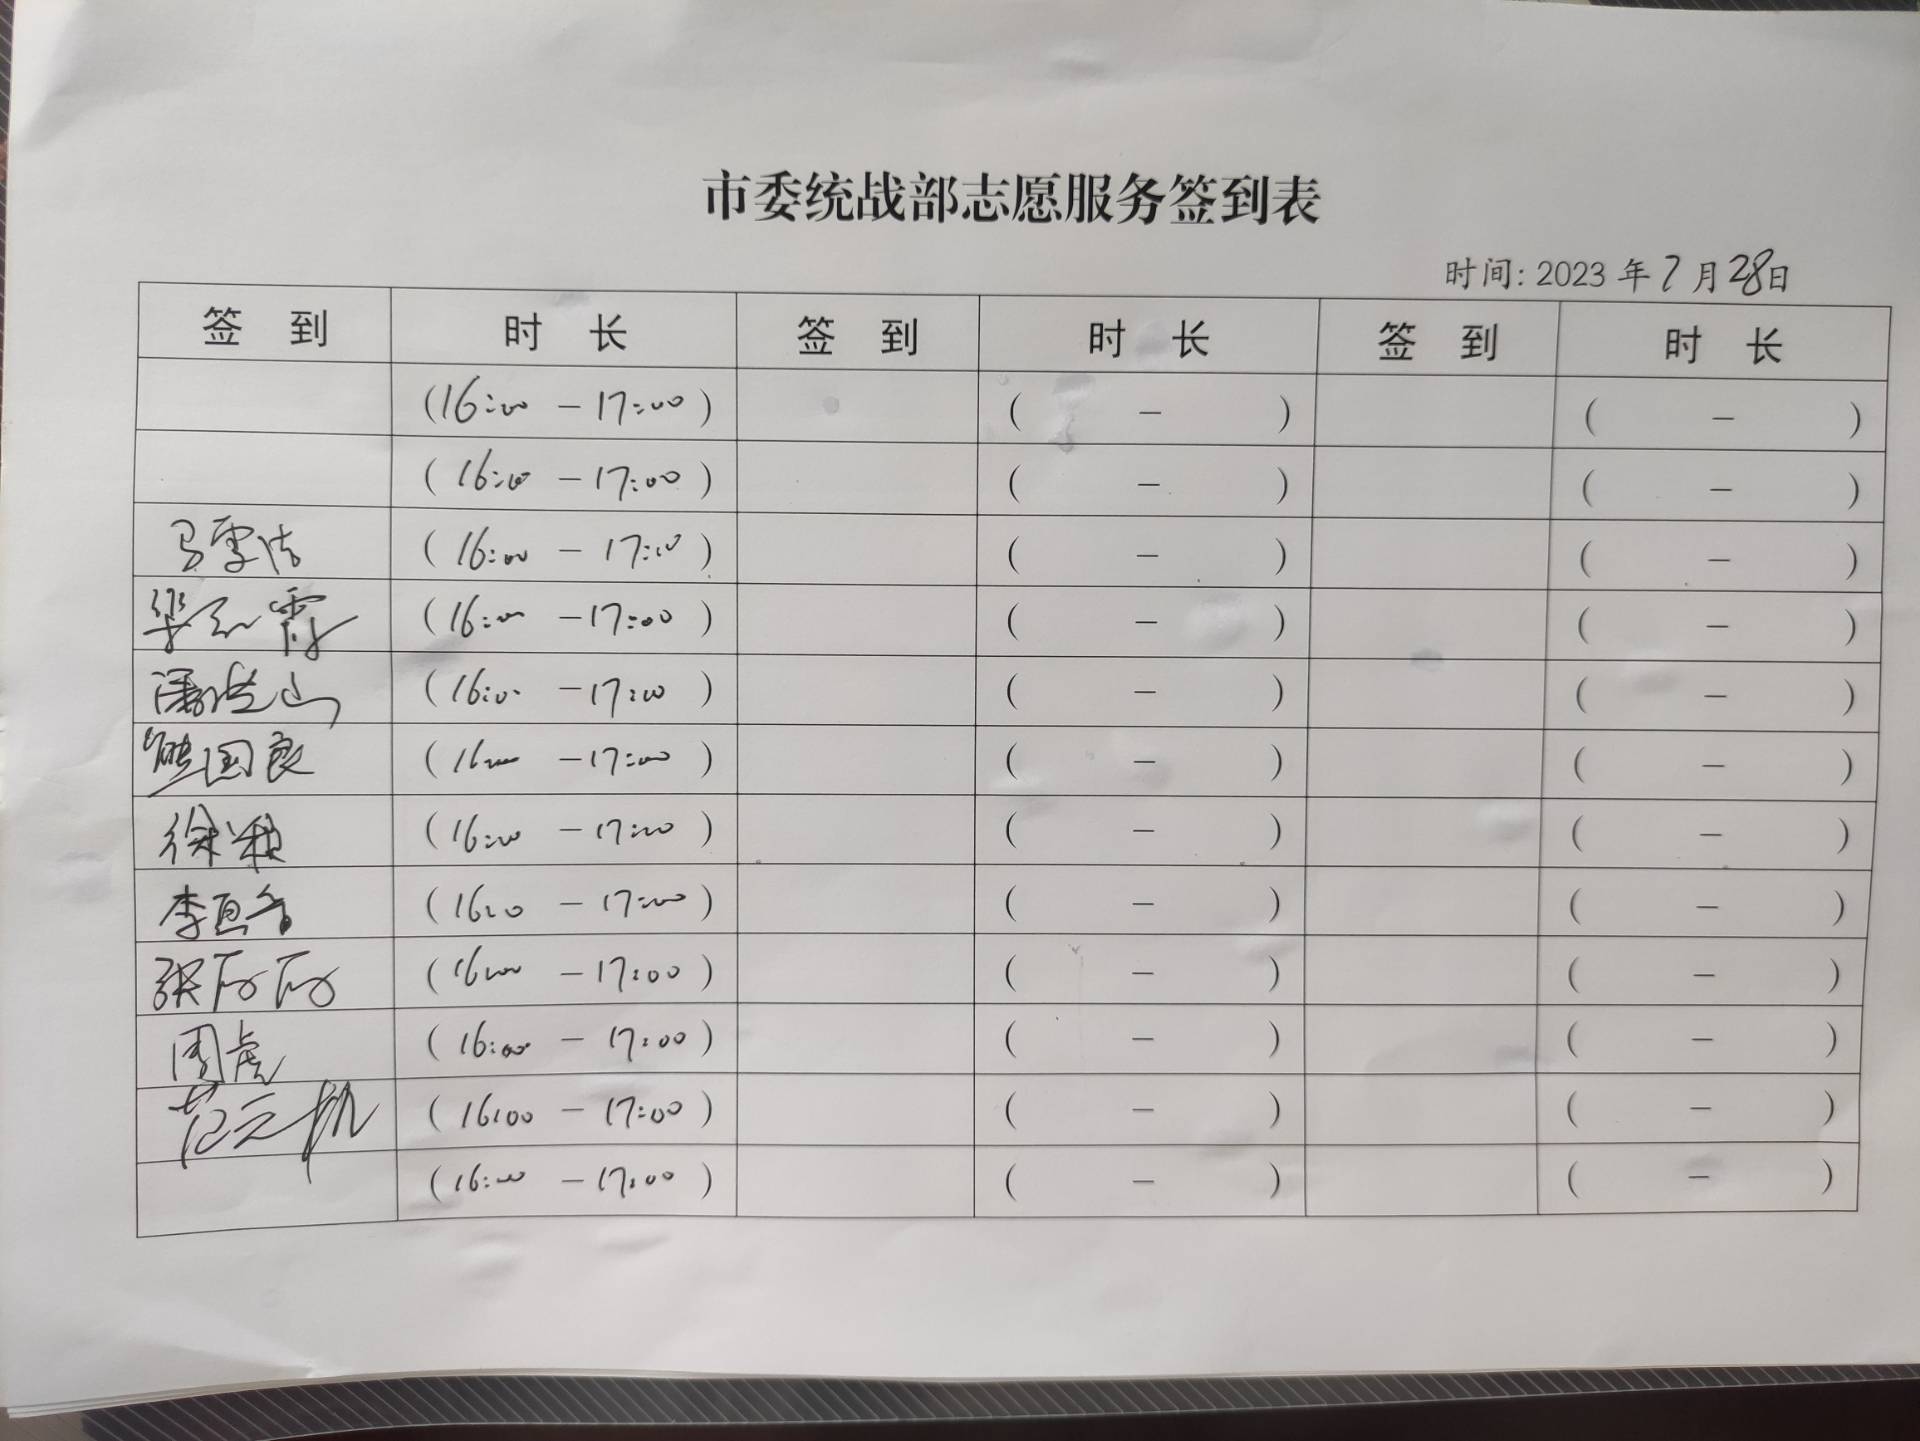 市委统战部志愿服务签到表
时间: 2023 年 7 月 28 日
签 到 时 长 签 到 时 长 签 到 时 长
(16:00 - 17:00) ( - ) ( - )
(16:00 - 17:00) ( - ) ( - )
马雪洁 (16:00 - 17:00) ( - ) ( - )
梁红霞 (16:00 - 17:00) ( - ) ( - )
潘洪山 (16:00 - 17:00) ( - ) ( - )
熊国良 (16:00 - 17:00) ( - ) ( - )
徐 (16:00 - 17:00) ( - ) ( - )
李 (16:00 - 17:00) ( - ) ( - )
张 (16:00 - 17:00) ( - ) ( - )
周虎 (16:00 - 17:00) ( - ) ( - )
范元 (16:00 - 17:00) ( - ) ( - )
(16:00 - 17:00) ( - ) ( - )